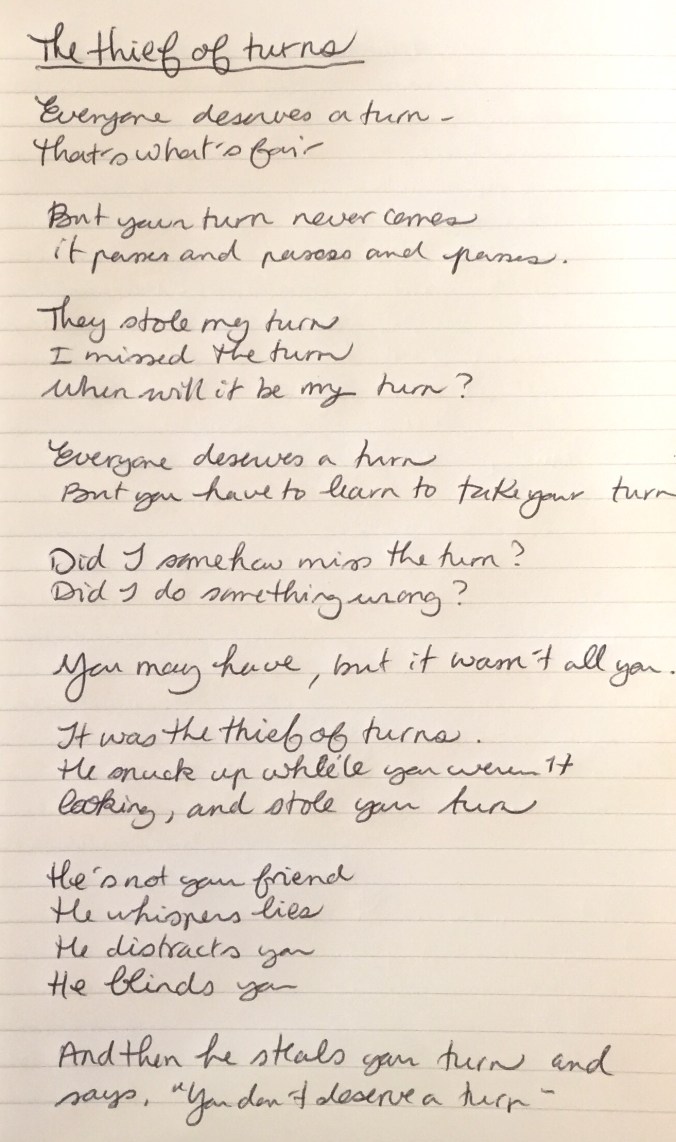 The thief of turns
Everyone deserves a turn -
that's what's fair
But your turn never comes
it passes and passes and passes.
They stole my turn
I missed the turn
When will it be my turn?
Everyone deserves a turn
But you have to learn to take your turn
Did I somehow miss the turn?
Did I do something wrong?
You may have, but it wasn't all you.
It was the thief of turns.
He snuck up while you weren't
looking, and stole your turn
He's not your friend
He whispers lies
He distracts you
He blinds you
And then he steals your turn and
says, "You don't deserve a turn"